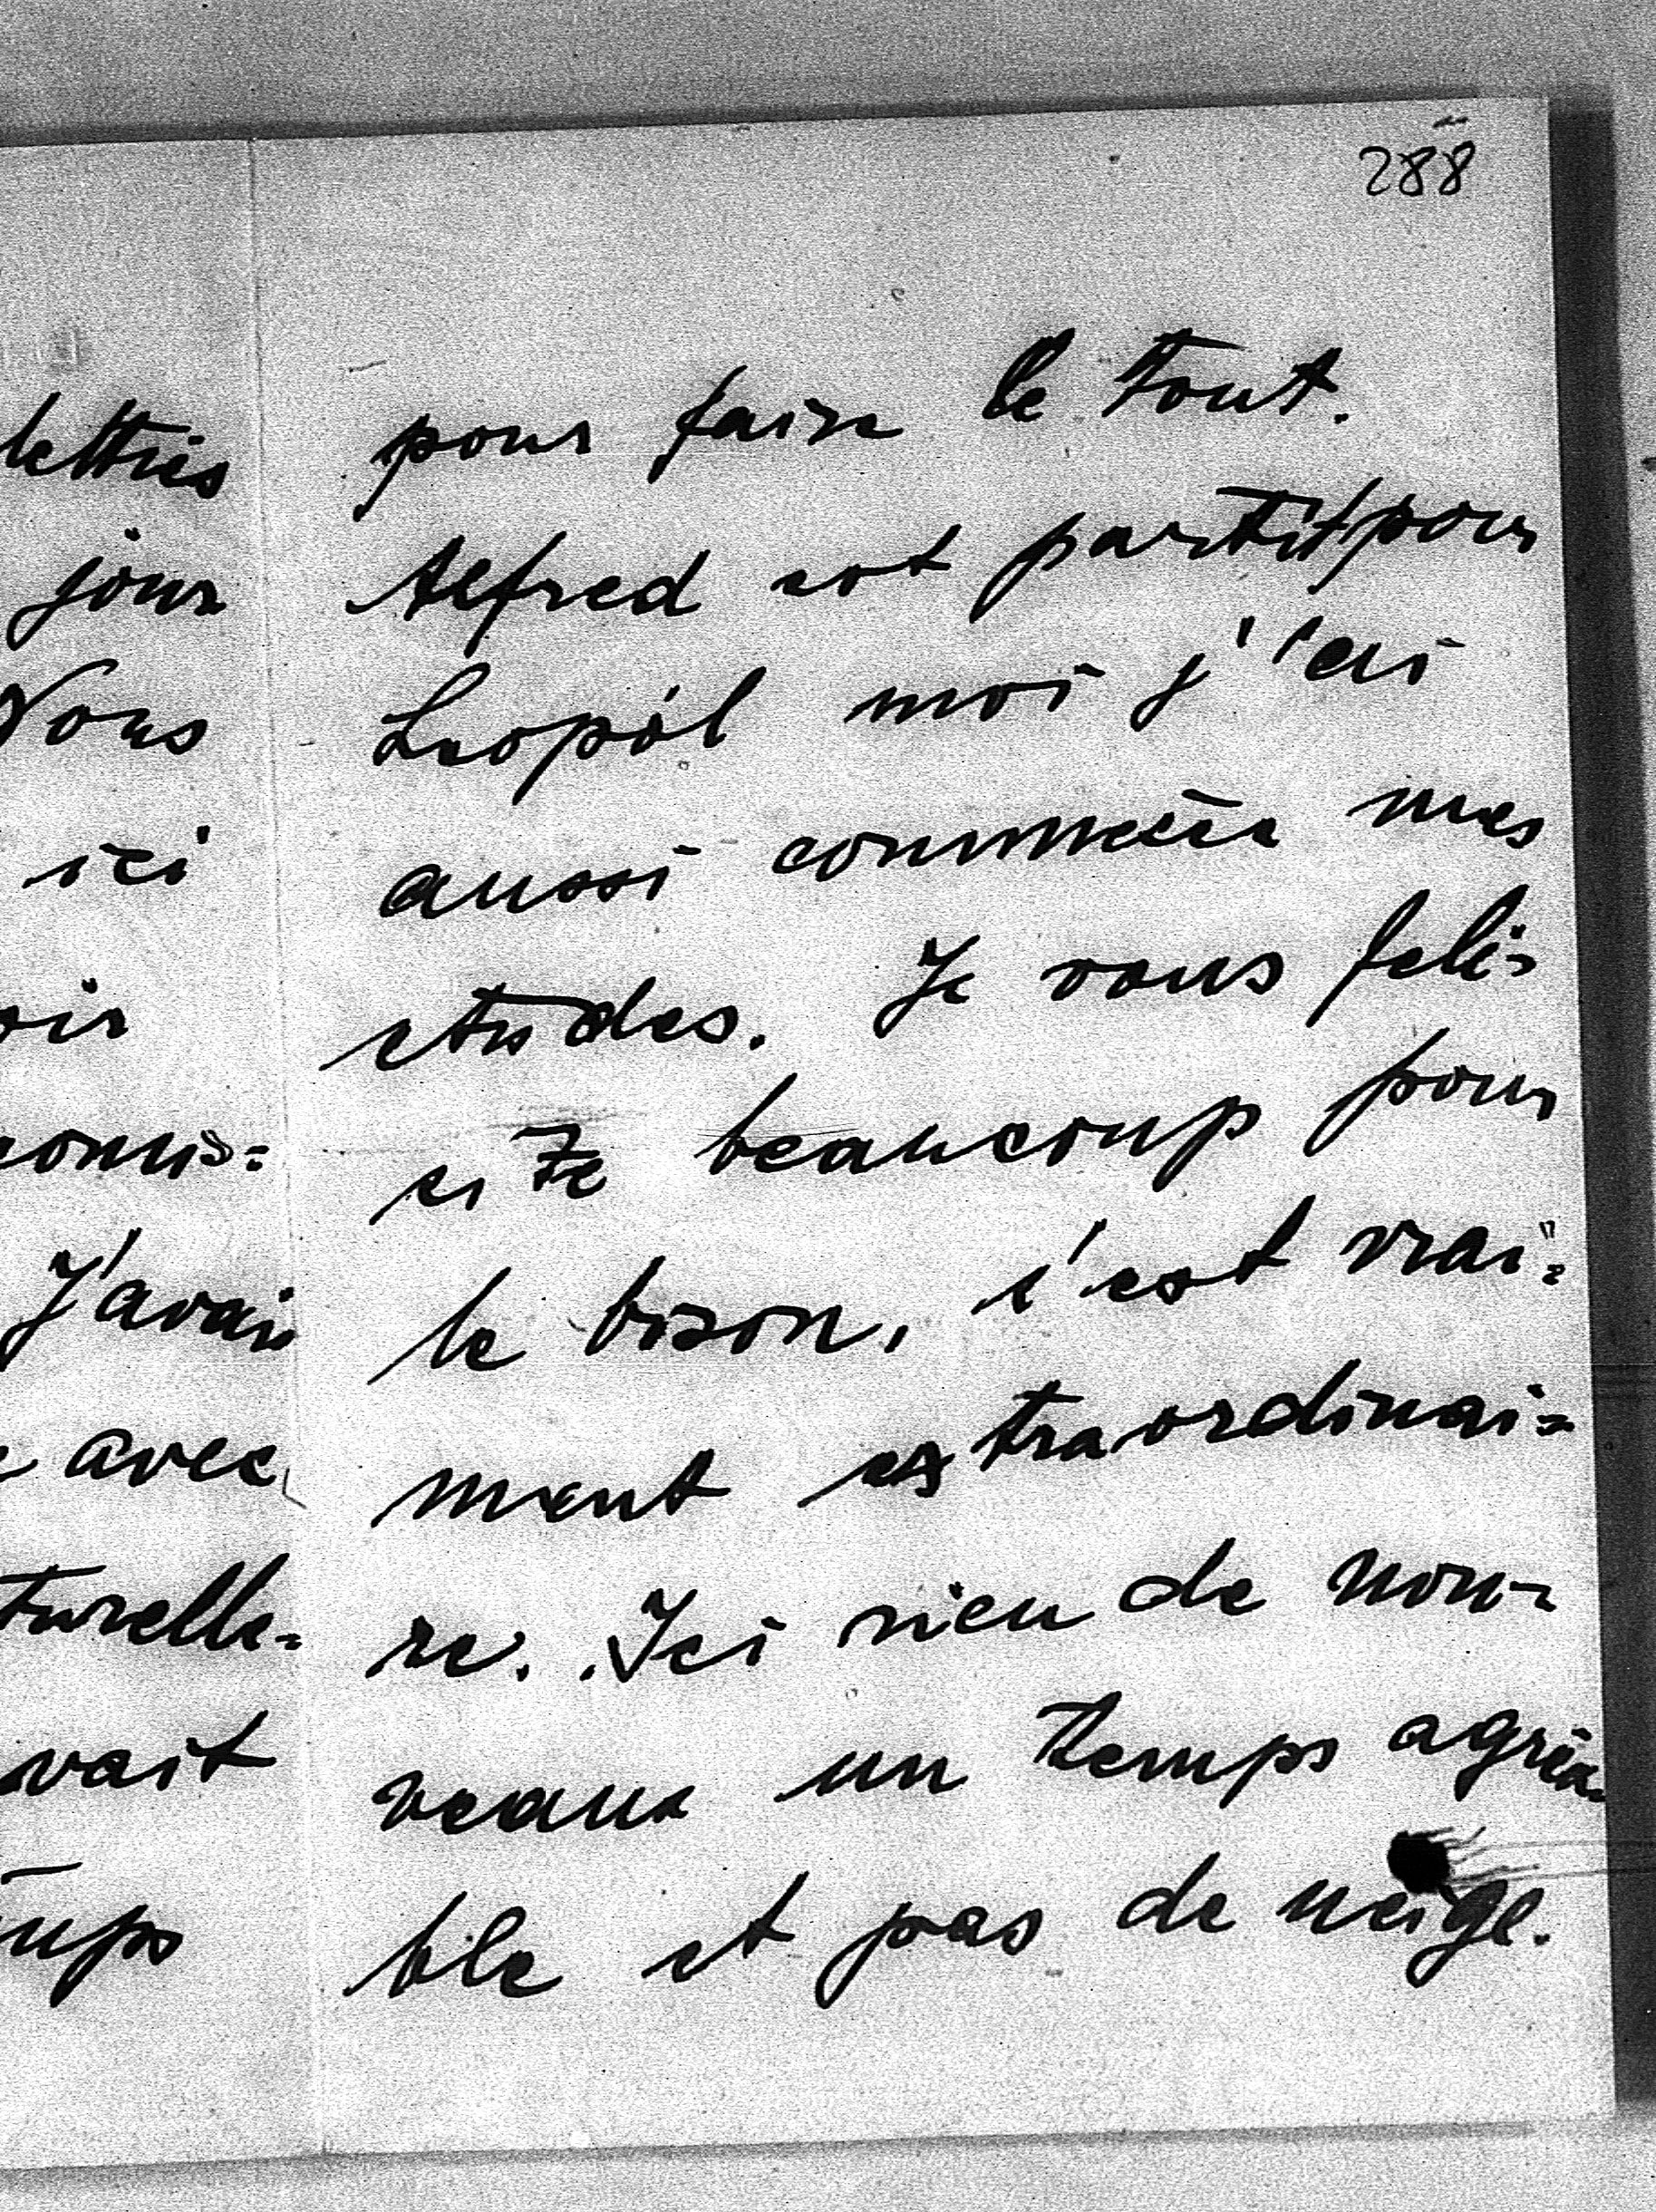 lettres
jour
Nous
ici
oir
J'avais
avec
turelle=
vait
288
pour faire le tout.
Alfred est partit pour
Leopol moi j'ai
aussi mes
études. Je vous feli-
cite beaucoup pour
le bison, c'est vrai=
ment extraordinai=
re. Ici rien de nou-
veaux un temps agréa-
ble et pas de neige.